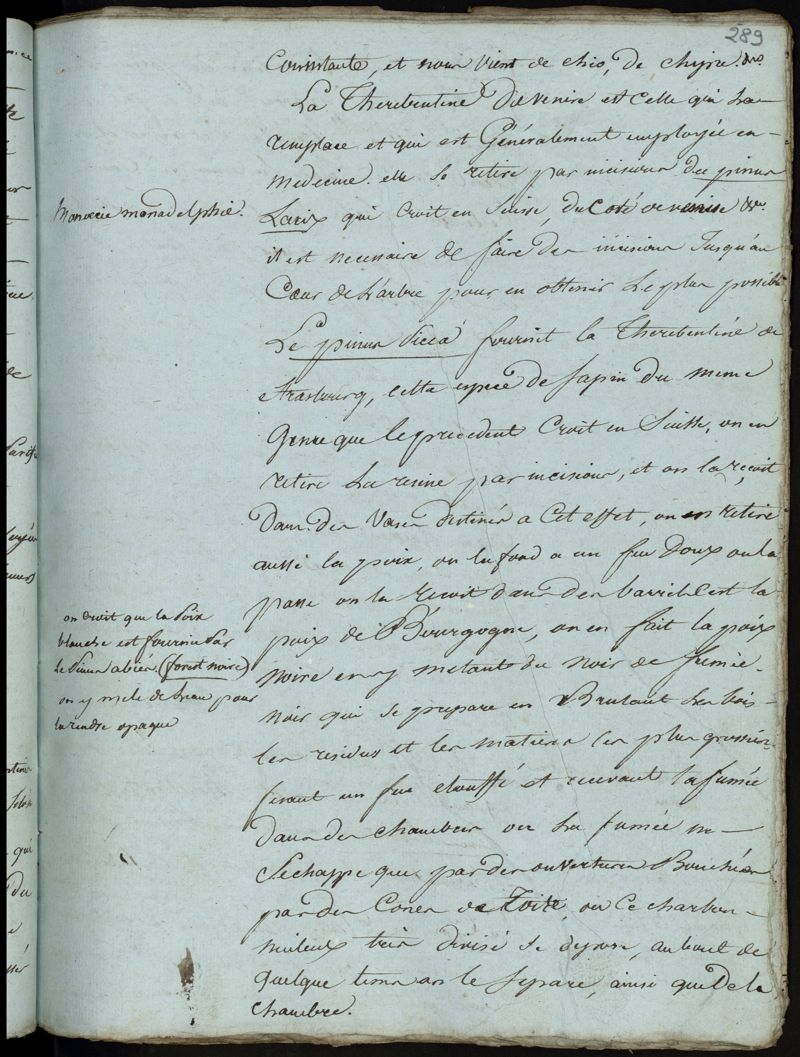 289
Consistante, et nous vient de chio, de chypre &c.
La Therebentine de venise est celle qui la
remplace et qui est Généralement employée en
medecine. elle se retire par incision du pinus
Larix qui Croit en Suisse, du Coté de venise &c.
il est necessaire de faire des incisions Jusqu'au
Cœur de L'arbre pour en obtenir Le plus possible
Le pinus Picea fournit la Therebentine de
strasbourg, Cette espece de sapin du meme
Genre que le precedent Croit en Suisse, on en
retire La resine par incisions, et on la reçoit
dans des Vases destinés a Cet effet, on en retire
aussi la poix, on la fond a un feu Doux on la
passe on la recoit dans des barrils C'est la
poix de Bourgogne, on en fait la poix
noire en y metant du noir de fumée
noir qui se prepare en Brulant les bois
les residus et les matieres les plus grossieres
faisant un feu etouffé et recevant la fumée
dans des chambres ou La fumée ne
s'echappe que par des ouvertures Bouchées
par des Cones de Toile, ou Ce charbon
huileux très divisé se depose, au bout de
quelque tems on le separe, ainsi que De la
chambre.
Monoecie monadelphie.
on Croit que la Poix
blanche est fournie Par
le Pinus abies. (foret noire)
on y mele de L'eau pour
la rendre opaque